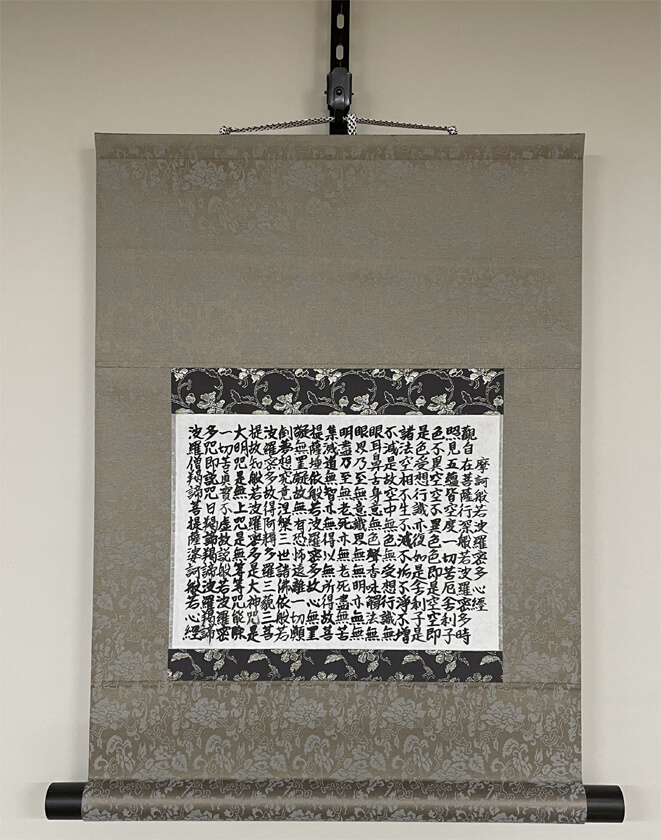 摩訶般若波羅蜜多心経
觀自在菩薩行深般若波羅蜜多時
照見五蘊皆空度一切苦厄舎利子
色不異空空不異色色即是空空即
是色受想行識亦復如是舎利子是
諸法空相不生不滅不垢不淨不增
不減是故空中無色無受想行識無
眼耳鼻舌身意無色聲香味觸法無
眼界乃至無意識界無無明亦無無
明盡乃至無老死亦無老死盡無苦
集滅道無智亦無得以無所得故菩
提薩埵依般若波羅蜜多故心無罣
礙無罣礙故無有恐怖遠離一切顛
倒夢想究竟涅槃三世諸佛依般若
波羅蜜多故得阿耨多羅三藐三菩
提故知般若波羅蜜多是大神咒是
大明咒是無上咒是無等等咒能除
一切苦真實不虚故説般若波羅蜜
多咒即説咒曰羯諦羯諦波羅羯諦
波羅僧羯諦菩提薩婆訶般若心經